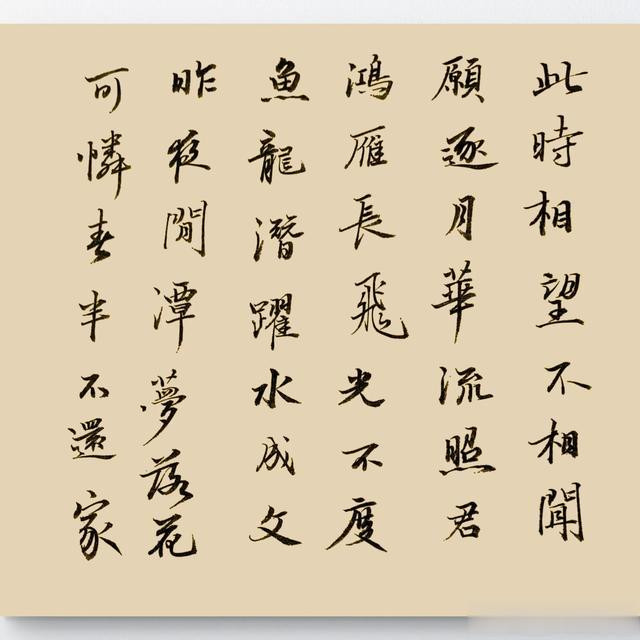 此時相望不相聞
願逐月華流照君
鴻雁長飛光不度
魚龍潛躍水成文
昨夜閒潭夢落花
可憐春半不還家